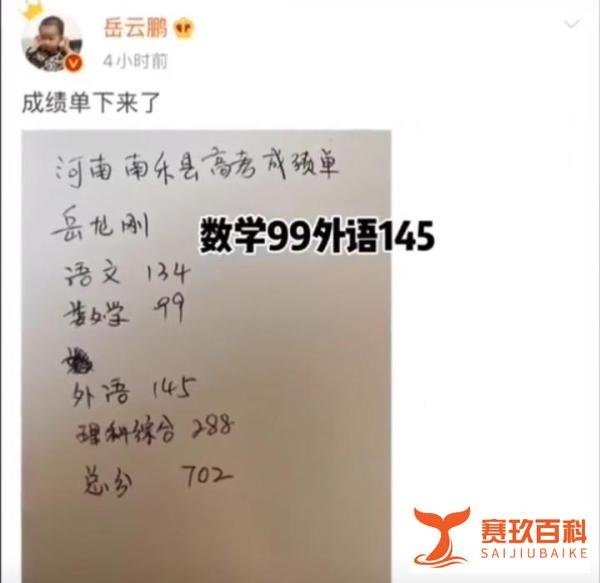 岳云鹏
4小时前
成绩单下来了
河南南乐县高考成绩单
岳龙刚
数学99外语145
语文 134
数学 99
外语 145
理科综合 288
总分 702
赛玖百科
SAIJIUBAIKE